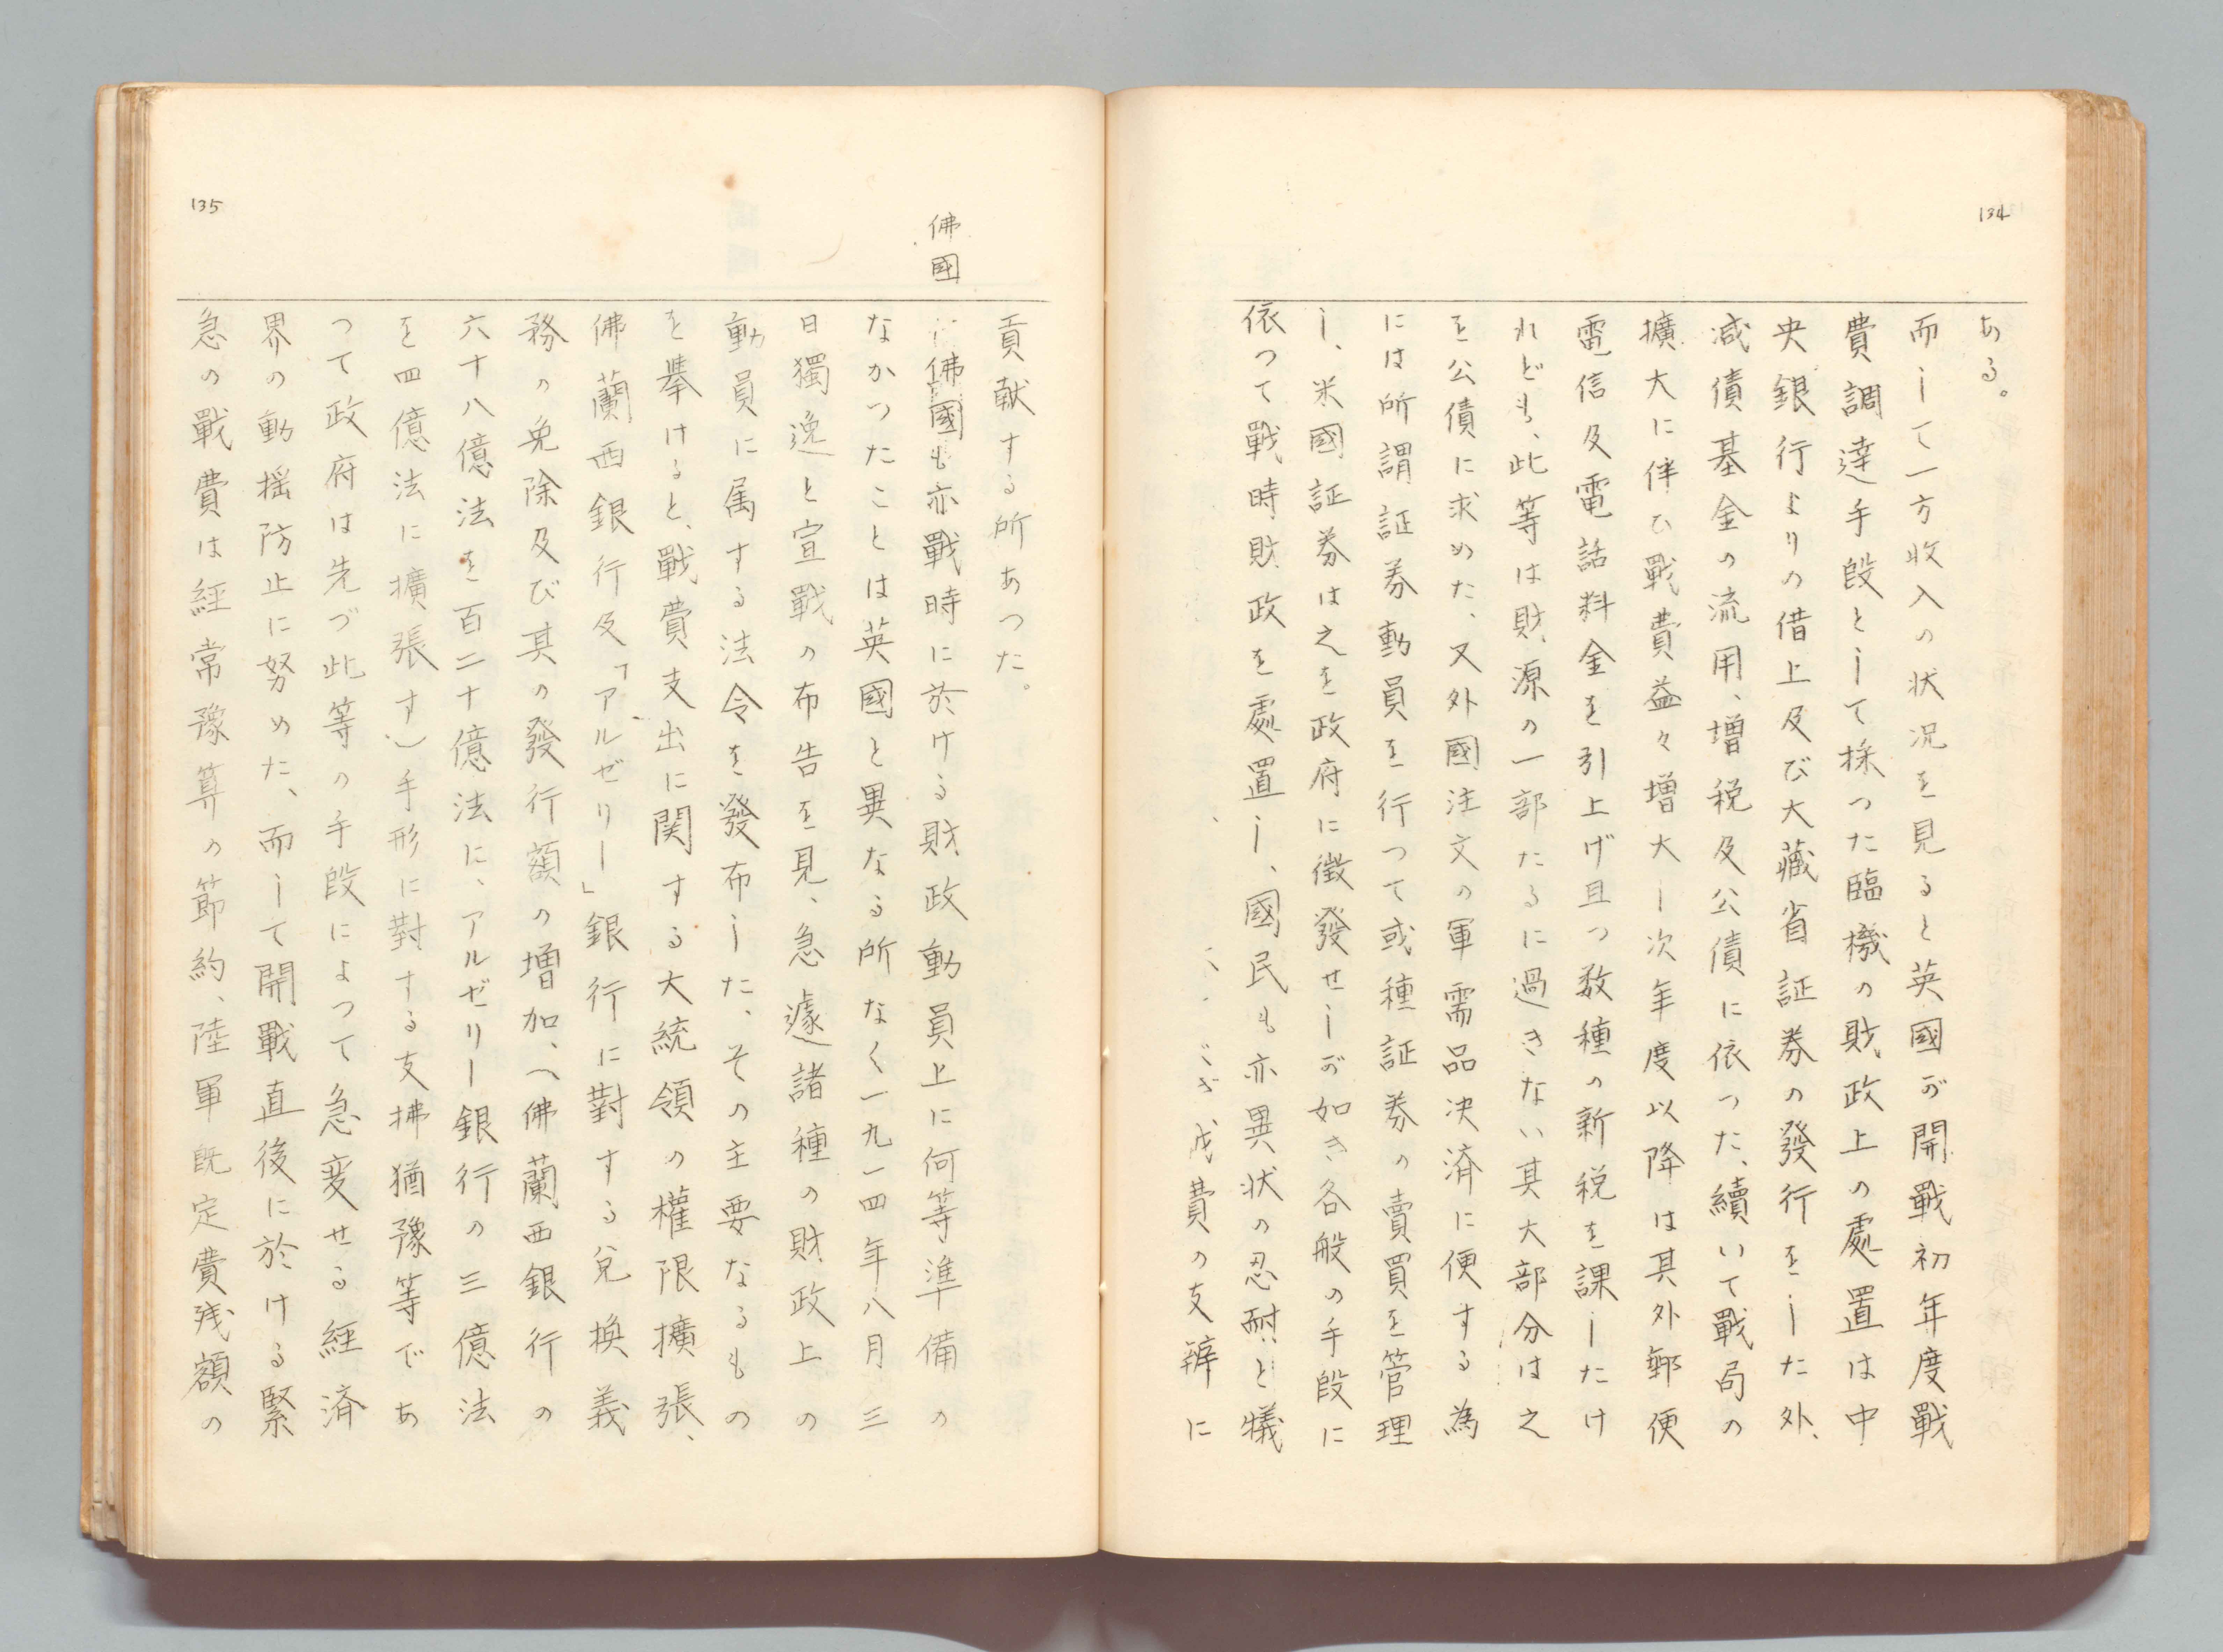 134
ある。
而して一方收入の状况を見ると英國が開戰初年度戰
費調達手段として採つた臨機の財政上の處置は中
央銀行よりの借上及び大藏省証券の發行をした外、
減債基金の流用、増税及公債に依つた、續いて戰局の
擴大に伴ひ戰費益々増大し次年度以降は其外郵便
電信及電話料金を引上げ且つ数種の新税を課したけ
れども、此等は財源の一部たるに過きない其大部分は之
を公債に求めた、又外國注文の軍需品决済に便する為
には所謂証券動員を行つて或種証券の賣買を管理
し、米國証券は之を政府に徴發せしが如き各般の手段に
依つて戰時財政を處置し、國民も亦異状の忍耐と犠
費の支辨に
135
佛國
貢献する所あつた。
佛國も亦戰時に於ける財政動員上に何等準備の
なかつたことは英國と異なる所なく一九一四年八月三
日獨逸と宣戰の布告を見、急遽諸種の財政上の
動員に属する法令を發布した、その主要なるもの
を挙けると、戰費支出に関する大統領の權限擴張、
佛蘭西銀行及「アルゼリー」銀行に對する兌換義
務の免除及び其の發行額の増加、(佛蘭西銀行の
六十八億法を百二十億法に、アルゼリー銀行の三億法
を四億法に擴張す)手形に對する支拂猶豫等であ
つて政府は先づ此等の手段によつて急変せる経済
界の動揺防止に努めた、而して開戰直後に於ける緊
急の戰費は経常豫算の節約、陸軍既定費残額の